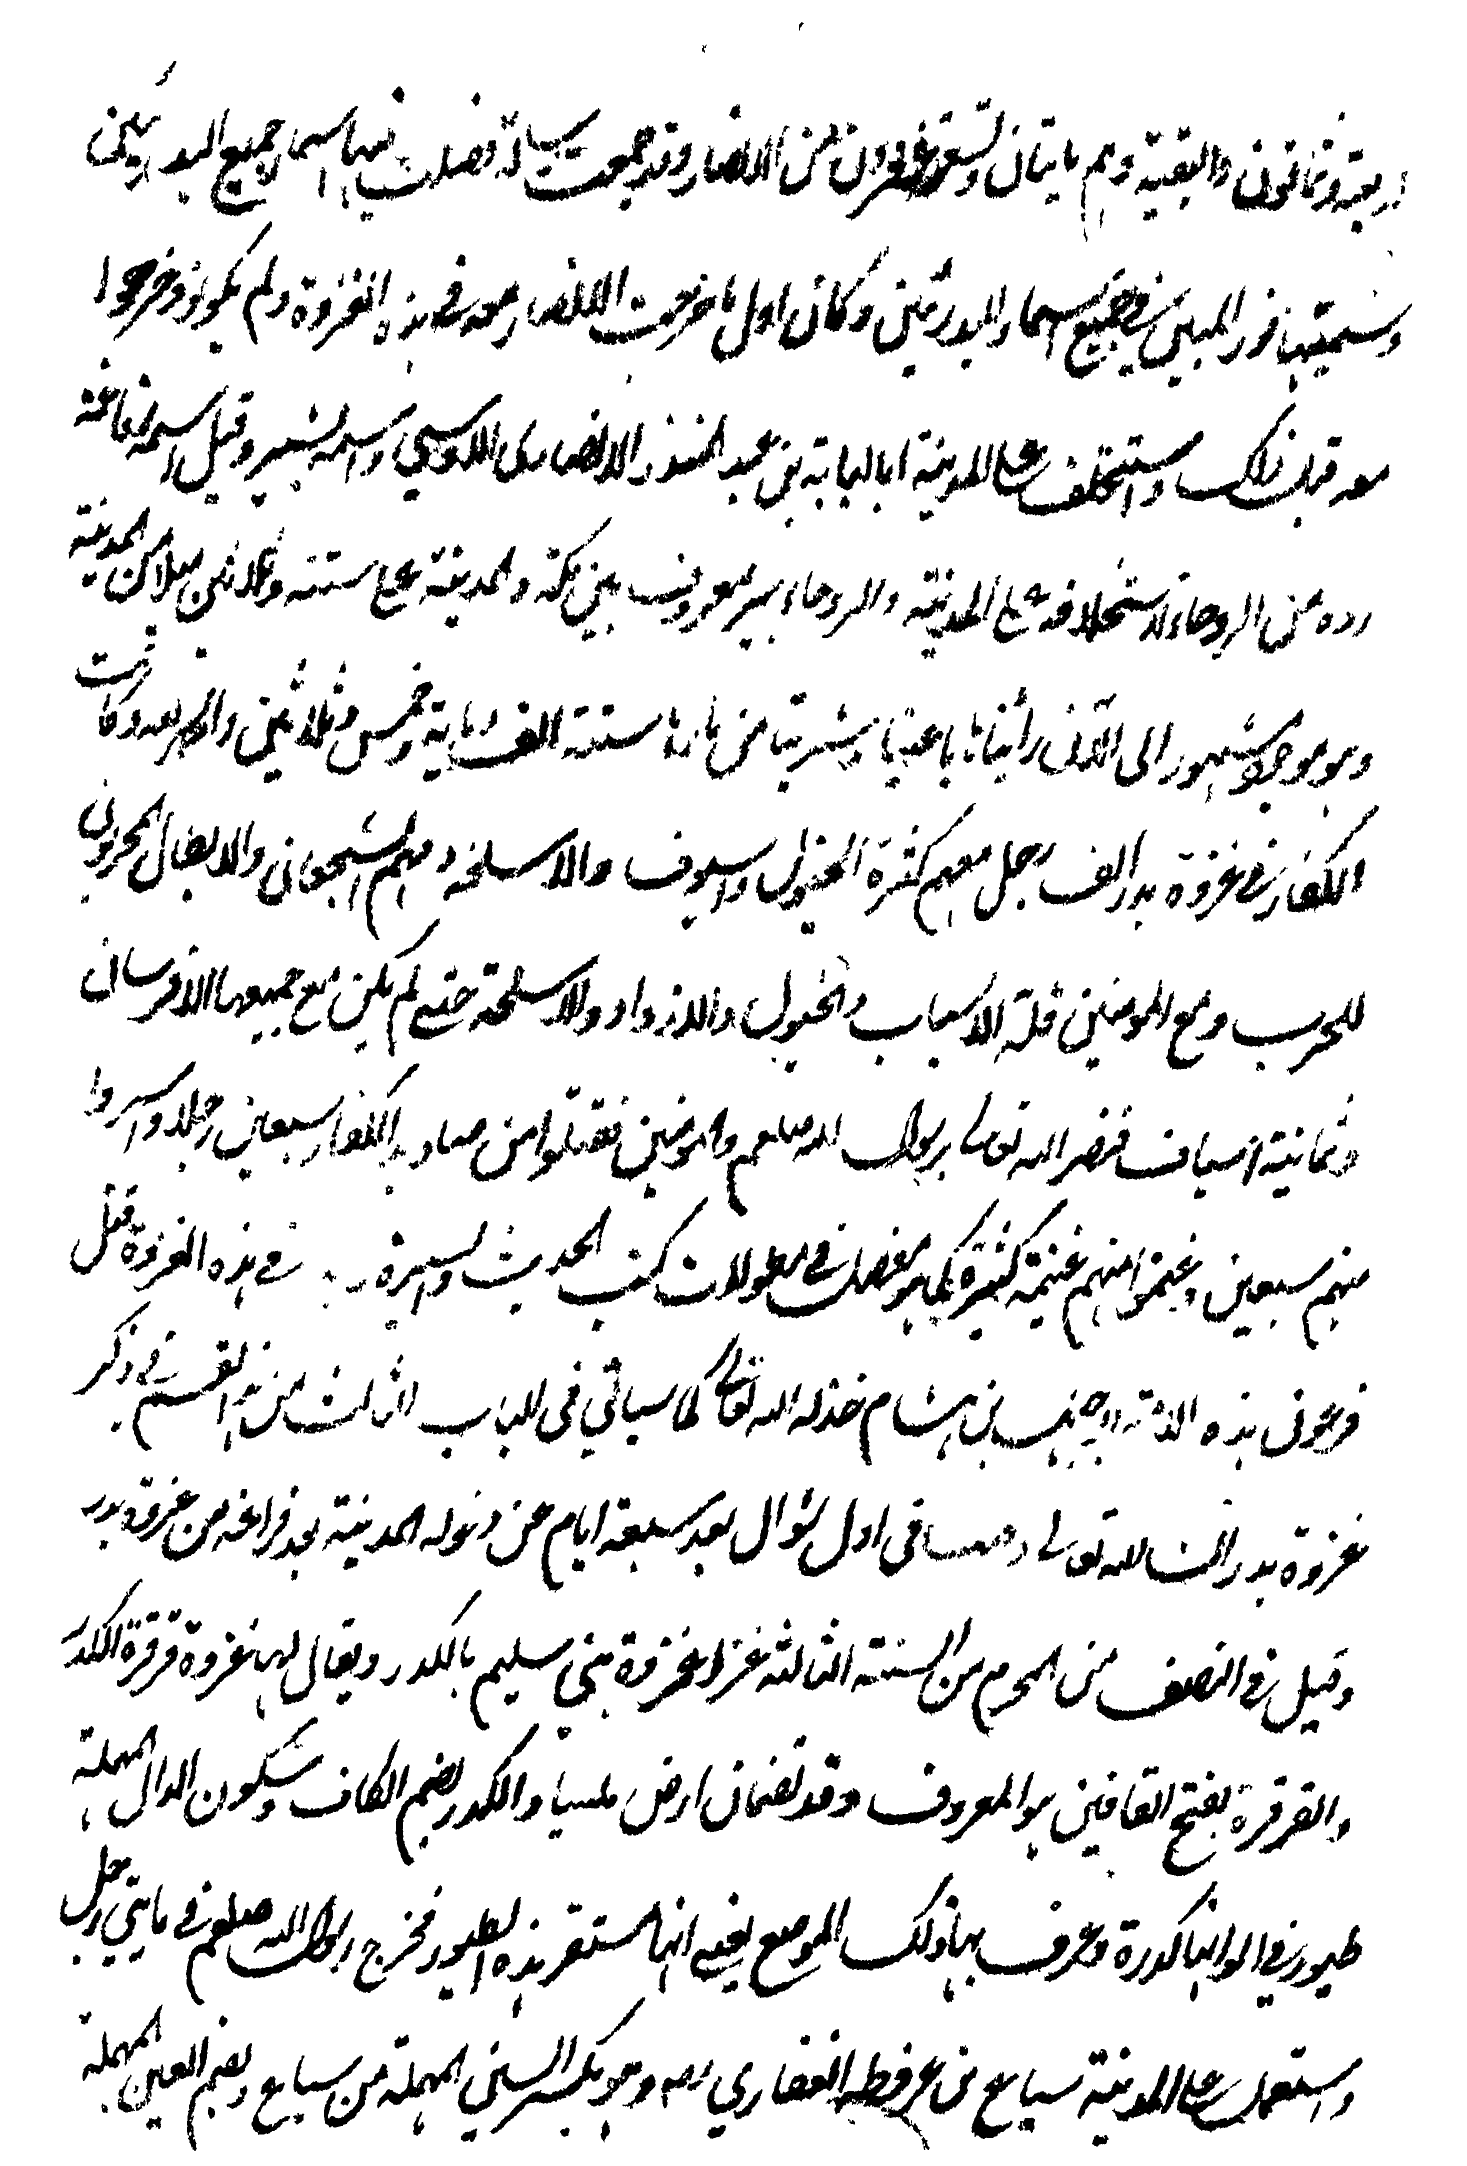 اربعة وثمانون والبقية وهم مايتان وتسعة وعشرون من الانصار وقد جمعت رسالة فصلت فيها اسماء جميع البدريين
وسميتها نور المبين في جميع اسماء البدريين وكان اول ما خرجت الانصار معه في هذه الغزوة ولم يكونوا خرجوا
معه قبل ذلك واستخلف على المدينة ابا لبابة بن عبد المنذر الانصاري الاوسي واسمه بشير وقيل اسمه رفاعة
رده من الروحاء لاستخلافه على المدينة والروحاء بير معروف بين مكة والمدينة على ستة وثلاثين ميلا من المدينة
وهو موجود مشهور الى الآن رأيناها باعيننا وشربنا من مائها سنة الف ومائة وخمس وثلاثين والحمد لله وكانت
الكفار في غزوة بدر الف رجل معهم كثرة الخيول والسيوف والاسلحة وفيهم الشجعان والابطال المجربون
للحرب ومع المومنين قلة الاسباب والخيول والازواد والاسلحة حتى لم يكن مع جميعهم الا فرسان
وثمانية اسياف فنصر الله تعالى رسول الله صلعم والمومنين فقتلوا من صناديد الكفار سبعين رجلا واسروا
منهم سبعين وغنموا منهم غنيمة كثيرة كما هو مفصل في مطولات كتب الحديث والسيرة في هذه الغزوة قتل
فرعون هذه الامة ابو جهل بن هشام خذله الله تعالى كما سياتي في الباب الثالث من هذا القسم في ذكر
غزوة بدر انشا الله تعالى وفيها في اول شوال بعد سبعة ايام من دخوله المدينة بعد فراغه من غزوة بدر
وقيل في النصف من المحرم من السنة الثالثة غزا غزوة بني سليم بالكدر ويقال لها غزوة قرقرة الكدر
والقرقرة بفتح القافين هو المعروف وقد تضمان ارض ملسا والكدر بضم الكاف وسكون الدال المهملة
طيور في الوانها كدرة وعرف بها ذلك الموضع يعني انها مستقر هذه الطيور فخرج رسول الله صلعم في مايتي رجل
واستعمل على المدينة سباع بن عرفطه الغفاري رضه وهو بكسر السين المهملة من سباع وبضم العين المهملة